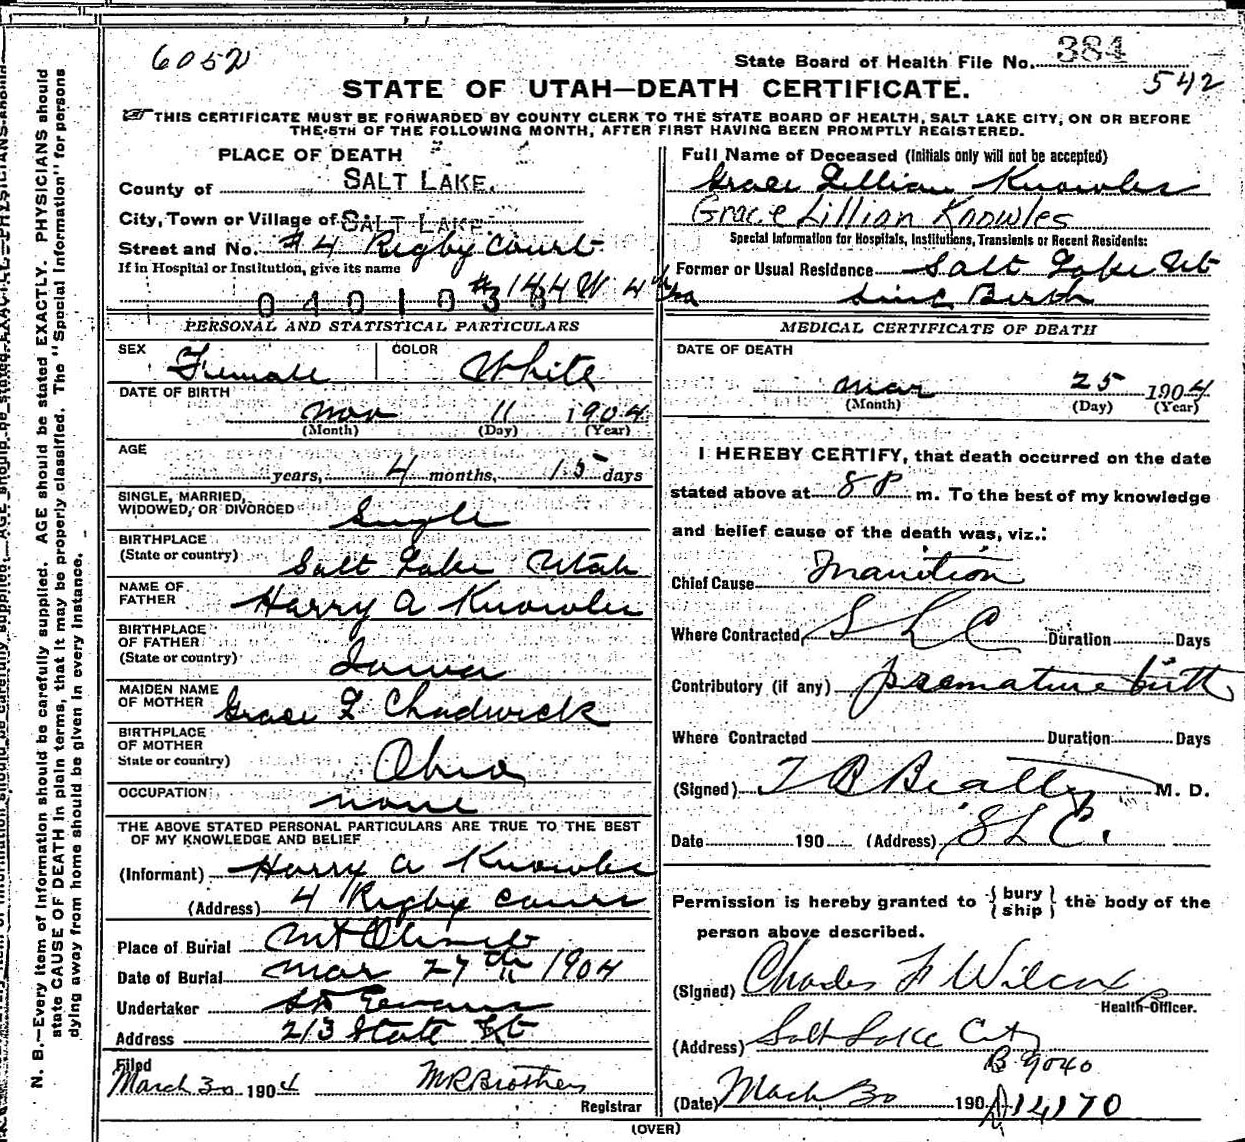 6052
State Board of Health File No. 384
542
STATE OF UTAH—DEATH CERTIFICATE.
THIS CERTIFICATE MUST BE FORWARDED BY COUNTY CLERK TO THE STATE BOARD OF HEALTH, SALT LAKE CITY, ON OR BEFORE
THE 5TH OF THE FOLLOWING MONTH, AFTER FIRST HAVING BEEN PROMPTLY REGISTERED.
PLACE OF DEATH
County of SALT LAKE.
City, Town or Village of SALT LAKE.
Street and No. #4 Rigby Court
If in Hospital or Institution, give its name
#144 W 4th
PERSONAL AND STATISTICAL PARTICULARS
SEX Female COLOR White
DATE OF BIRTH
Nov 11 1904
(Month) (Day) (Year)
AGE
years, 4 months, 15 days
SINGLE, MARRIED,
WIDOWED, OR DIVORCED Single
BIRTHPLACE
(State or country) Salt Lake Utah
NAME OF
FATHER Harry A Knowles
BIRTHPLACE
OF FATHER
(State or country) Iowa
MAIDEN NAME
OF MOTHER Grace L Chadwick
BIRTHPLACE
OF MOTHER
State or country) Ohio
OCCUPATION none
THE ABOVE STATED PERSONAL PARTICULARS ARE TRUE TO THE BEST
OF MY KNOWLEDGE AND BELIEF
(Informant) Harry A Knowles
(Address) 4 Rigby Court
Place of Burial Mt Olivet
Date of Burial Mar 27th 1904
Undertaker Evans
Address 213 State St
Filed
March 30 1904 M R Brothers
Registrar
Full Name of Deceased (Initials only will not be accepted)
Grace Lillian Knowles
Grace Lillian Knowles
Special Information for Hospitals, Institutions, Transients or Recent Residents:
Former or Usual Residence Salt Lake Ut
Sinc Birth
MEDICAL CERTIFICATE OF DEATH
DATE OF DEATH
Mar 25 1904
(Month) (Day) (Year)
I HEREBY CERTIFY, that death occurred on the date
stated above at 8 P m. To the best of my knowledge
and belief cause of the death was, viz.:
Chief Cause Inanition
Where Contracted S L C Duration Days
Contributory (if any) premature birth
Where Contracted Duration Days
(Signed) T B Beatty M. D.
Date 190 (Address) S L C.
Permission is hereby granted to { bury
ship } the body of the
person above described.
(Signed) Charles F Wilcox
Health Officer.
(Address) Salt Lake City
B 9040
(Date) March 30 190
A14170
(OVER)
N. B.—Every item of information should be carefully supplied. AGE should be stated EXACTLY. PHYSICIANS should
state CAUSE OF DEATH in plain terms, that it may be properly classified. The "Special Information" for persons
dying away from home should be given in every instance.